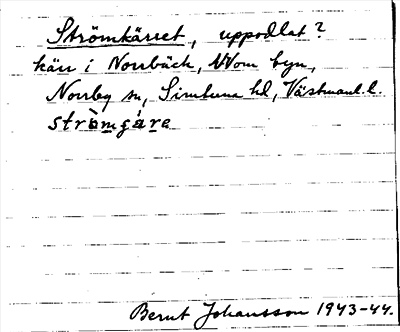 Strömkärret, uppodlat?
kärr i Norrbäck, NVom byn,
Norrby sn, Simtuna hd, Västmanl. l.
strömgáre
Bernt Johansson 1943-44.